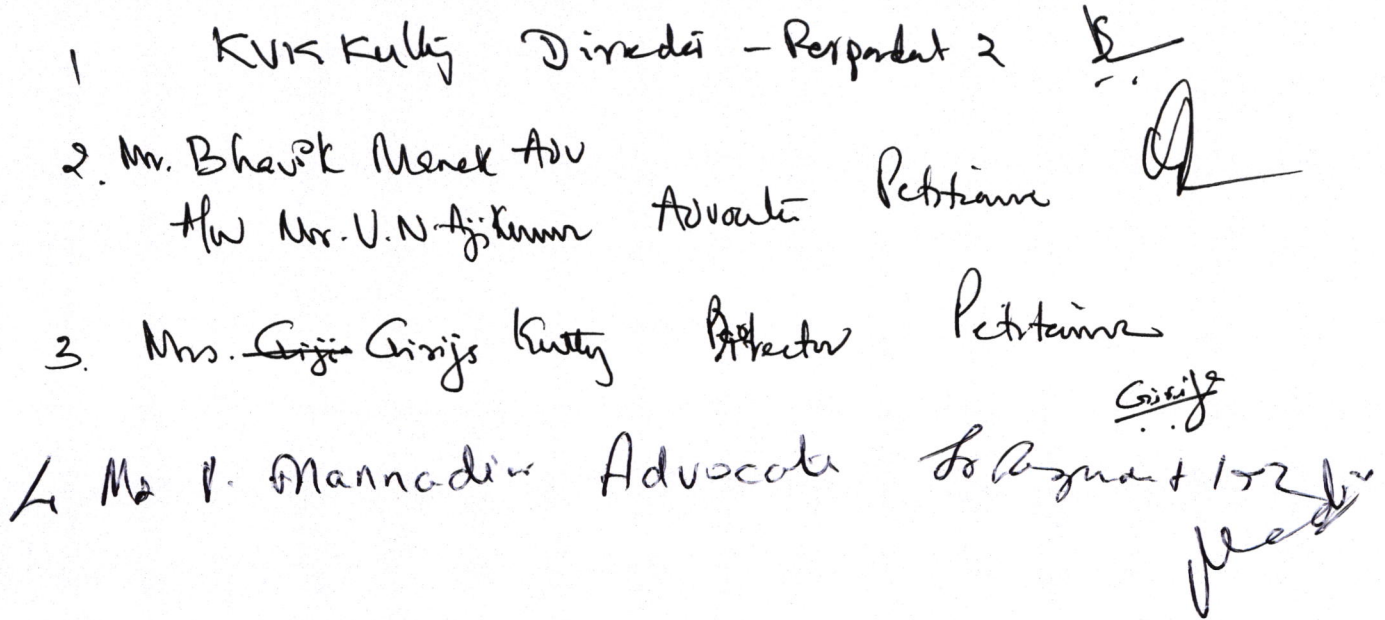 1 KVK Kutty Director - Respondent 2
2. Mr. Bhavik Manek Adv Advocate Petitioner
A/w Mr. V.N. Ajikumar
3. Mrs. Girija Kutty Director Petitioner
Girija
4 Mr P. Mannadiar Advocate for Respondent 1 & 2